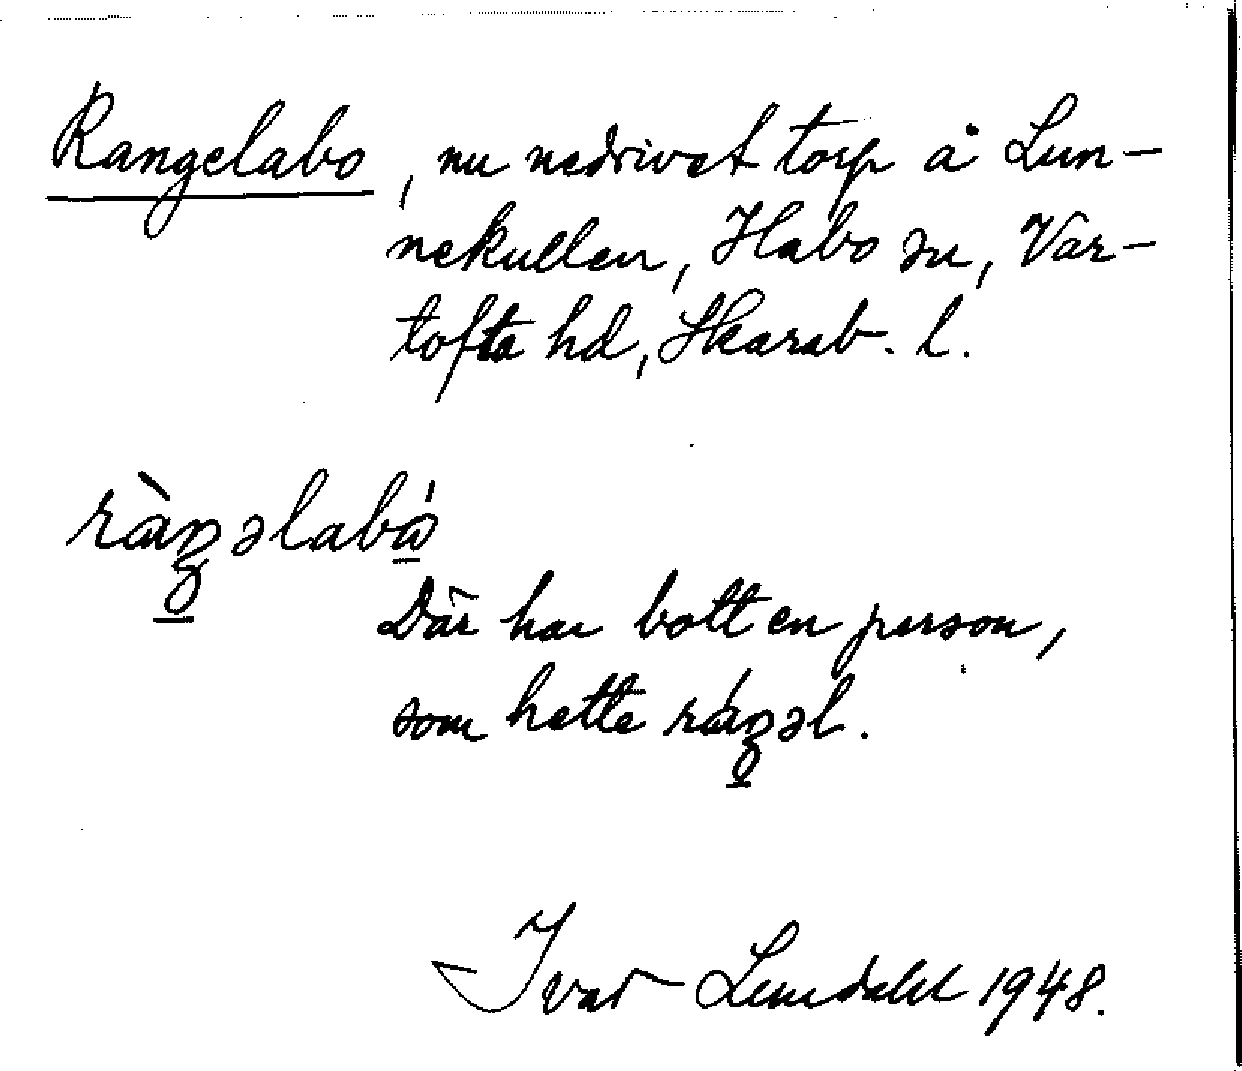 Rangelabo, nu nedrivet torp å Lun-
nekullen, Habo sn, Var-
tofta hd, Skarab. l.
ràŋəlabó
Där har bott en person,
som hette ráŋəl.
Ivar Lundahl 1948.